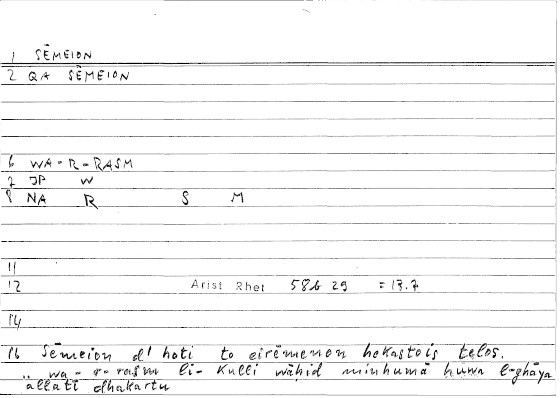 1 SĒMEION
2 QA SĒMEION
6 WA-R-RASM
7 JP W
8 NA R S M
11
12 Arist Rhet 58b 29 = 13.7
14
16 Sēmeion d' hoti to eirēmenon hekastois telos.
.. wa-r-rasm li-kulli wāhid minhumā huwa l-ghāya
allatī dhakartu